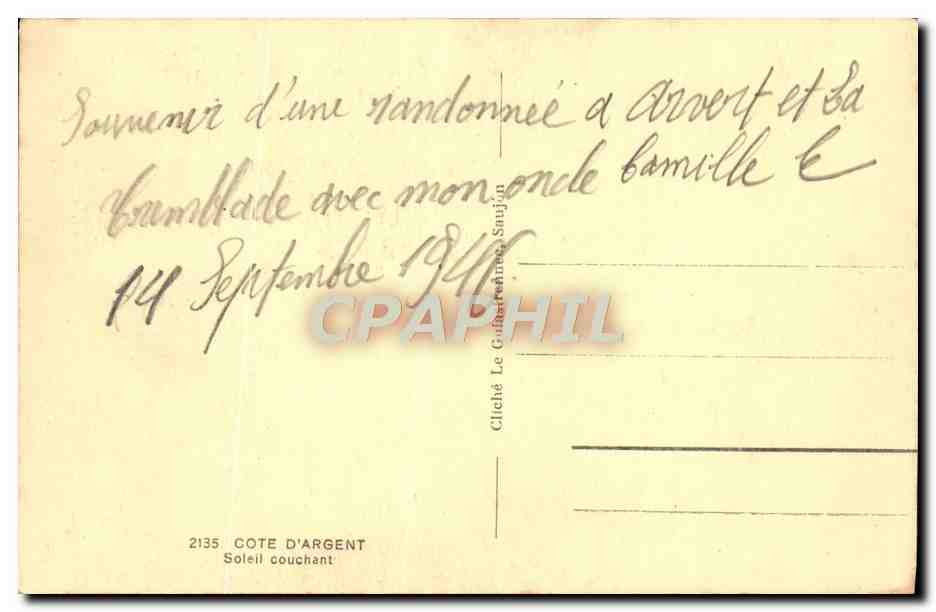 Souvenir d'une randonnée a Arvert et La
Tremblade avec mon oncle Camille le
14 Septembre 1941
CPAPHIL
Cliché Le Guinstrennec, Saujon
2135 COTE D'ARGENT
Soleil couchant